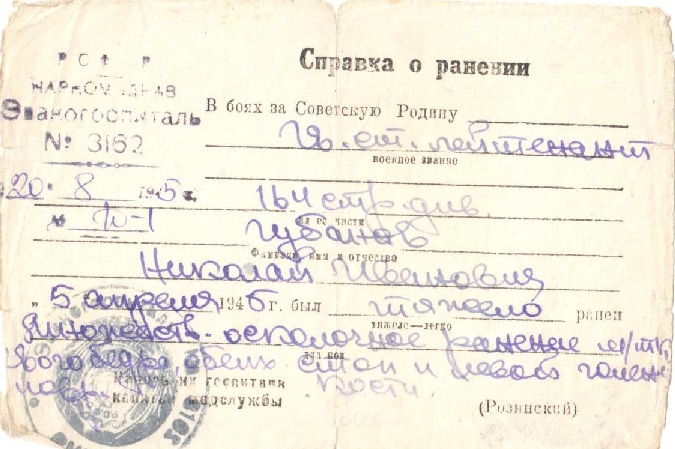 РСФСР
НАРКОМЗДРАВ
Эвакогоспиталь
№ 3162
20. 8 1945 г.
№ 10-1
Справка о ранении
В боях за Советскую Родину
Гв. ст. лейтенант
военное звание
164 стр. див.
Губанов
Фамилия, имя и отчество
Николай Иванович
„5 апреля 1945 г. был тяжело ранен
тяжело—легко
Множеств. осколочное ранение м/тк.
бедра, обеих стоп и левой голени
кости.
Начальник госпиталя
капитан медслужбы
(Розинский)
3162